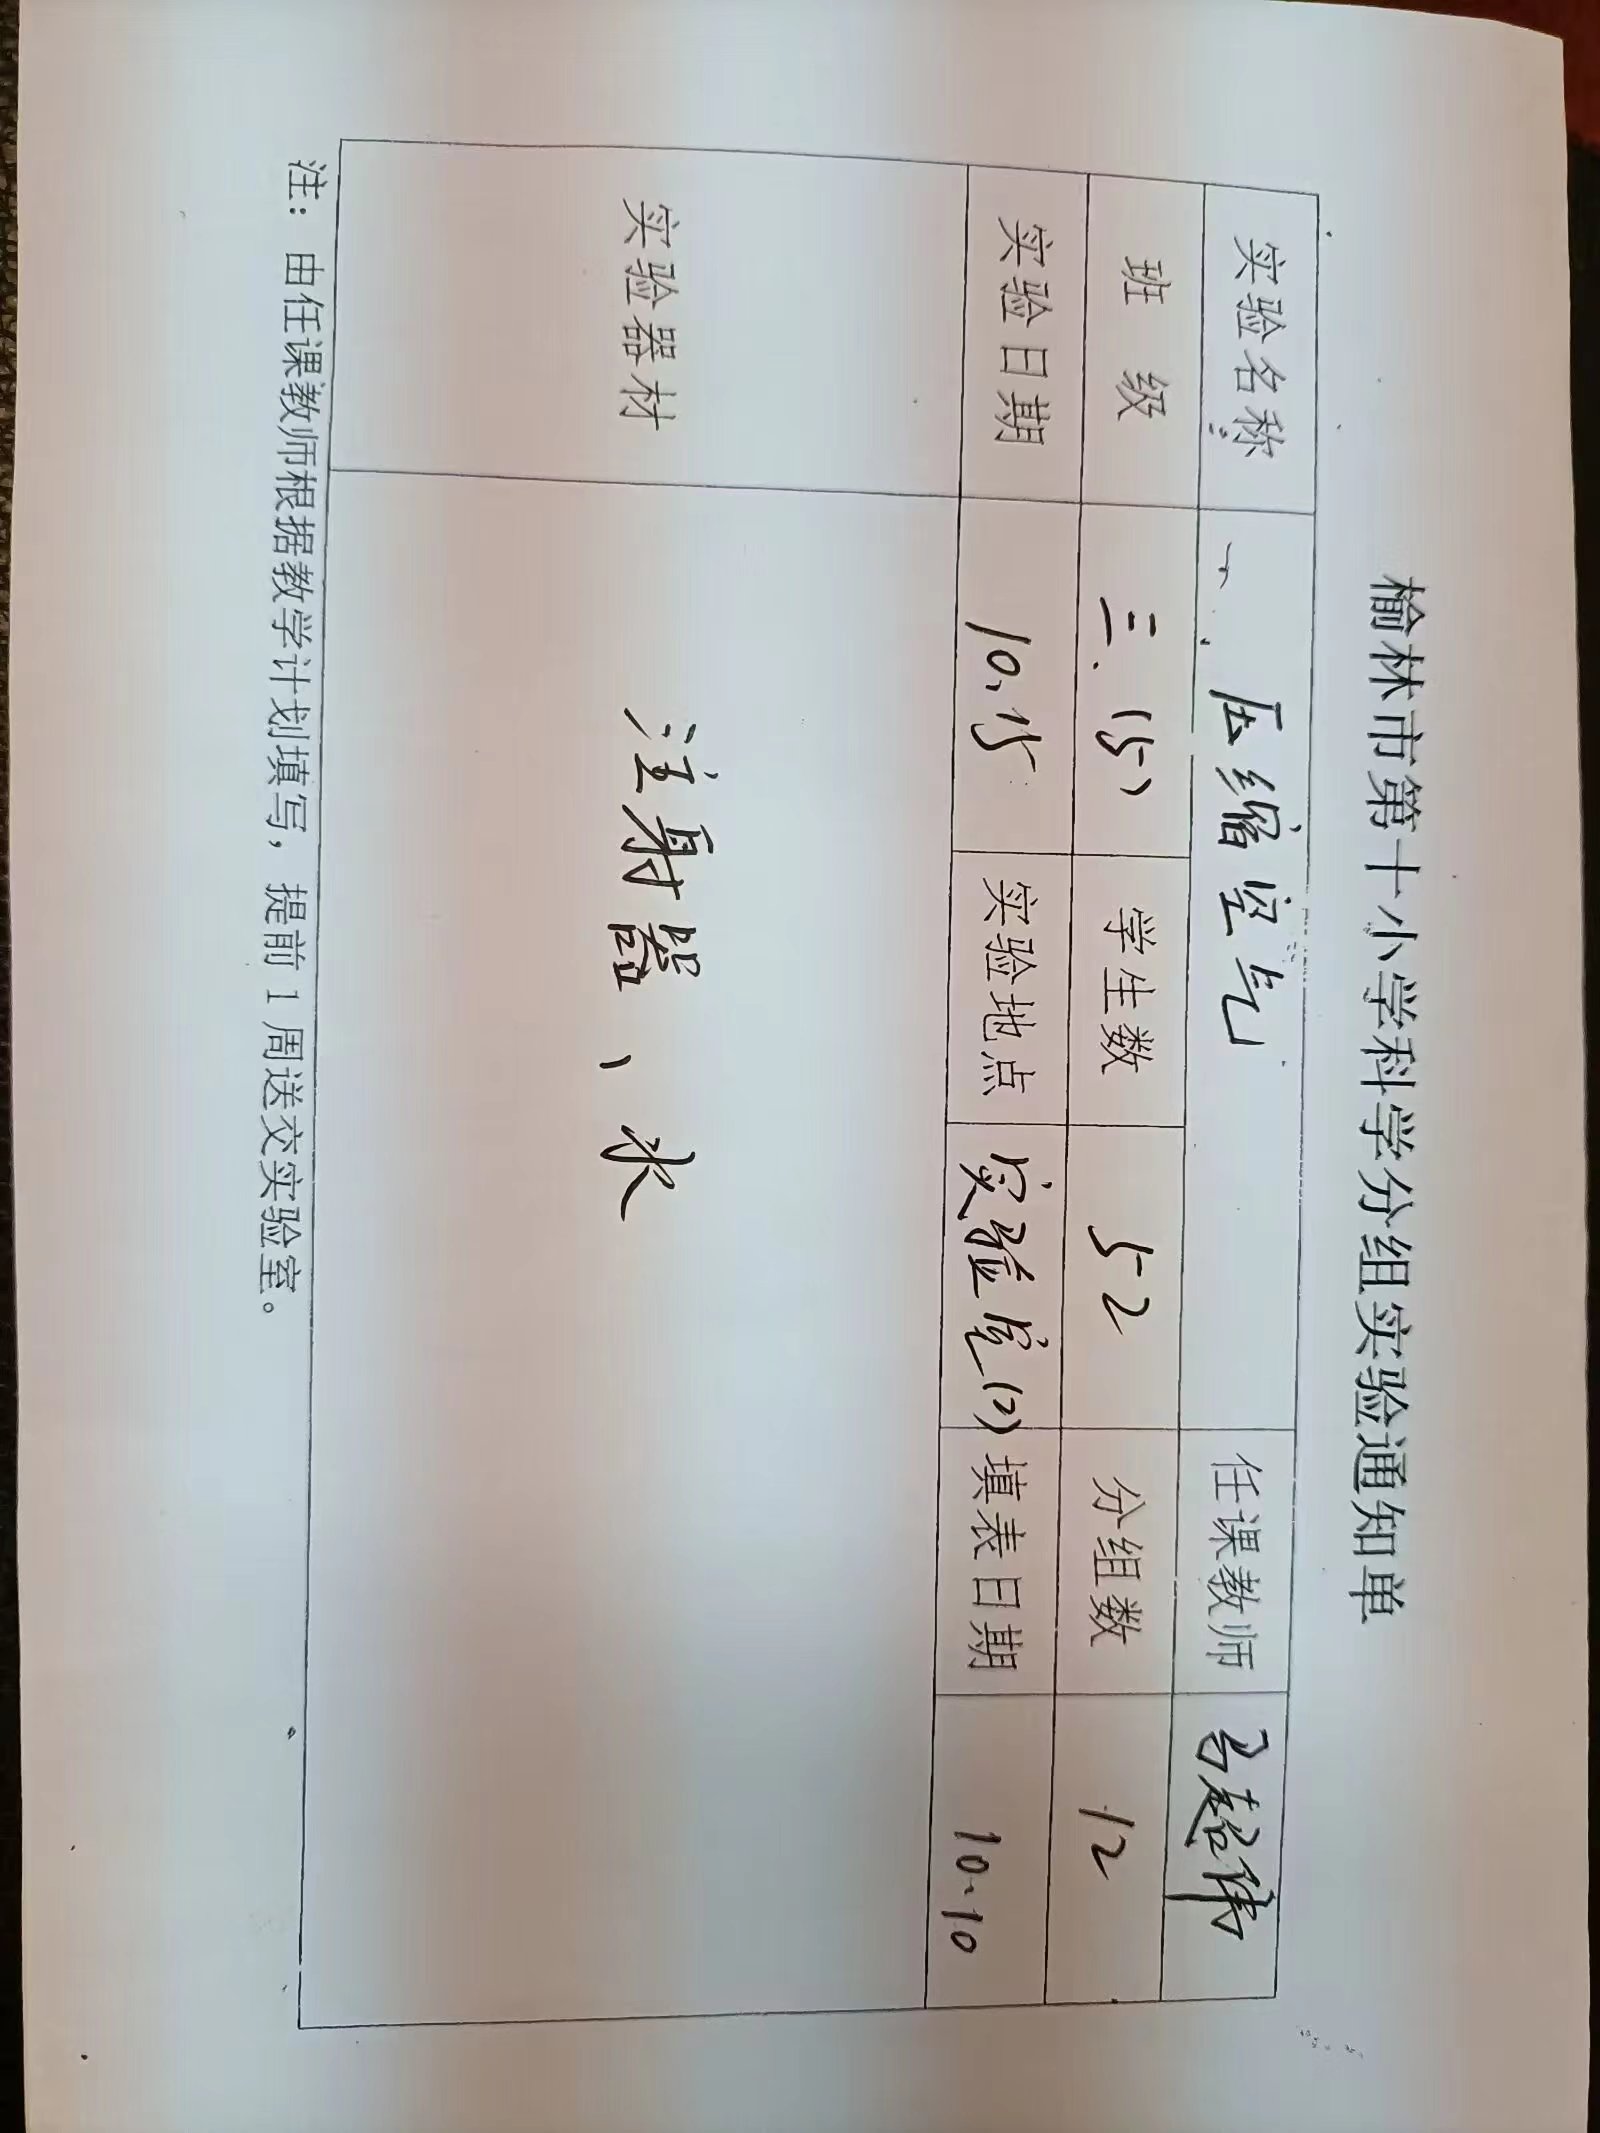 榆林市第十小学科学分组实验通知单
实验名称 压缩空气 任课教师 马超伟
班 级 三.(5) 学生数 52 分组数 12
实验日期 10.15 实验地点 实验室(2) 填表日期 10.10
实验器材 注射器、水
注：由任课教师根据教学计划填写，提前1周送交实验室。